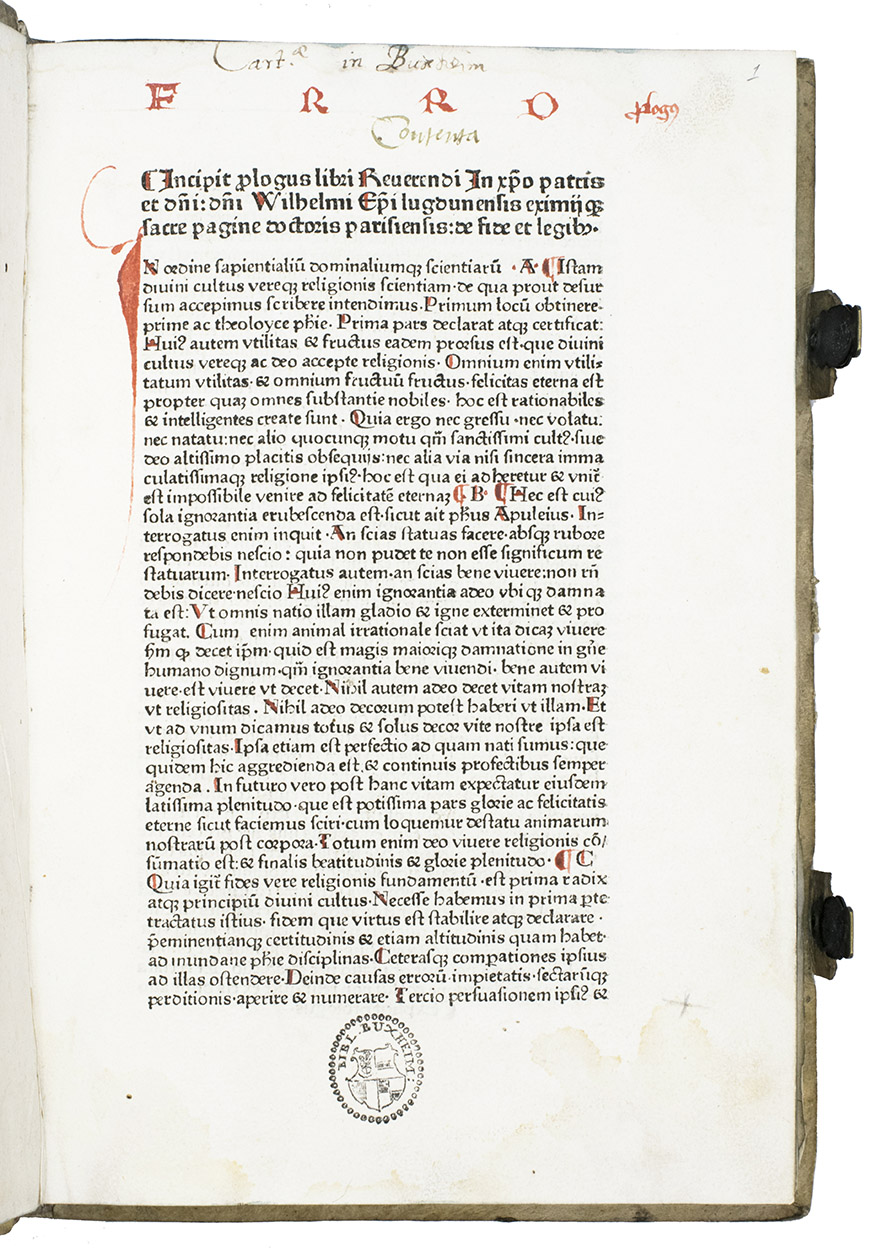 Cart.ᵃᵉ in Buxheim
1
F R R O
ꝓlogꝰ
Contenta
¶ Incipit ꝓlogus libri Reuerendi In xp̄o patris
et dn̄i: dn̄i Wilhelmi Ep̄i lugdunensis eximijqꝫ
sacre pagine doctoris parisiensis: de fide et legibꝰ.
N ordine sapientialiū dominaliumqꝫ scientiarū · A· ¶ Istam
diuini cultus vereqꝫ religionis scientiam· de qua prout desur
sum accepimus scribere intendimus. Primum locū obtinere·
prime ac theoloyce ph̄ie. Prima pars declarat atqꝫ certificat:
Huiꝰ autem vtilitas & fructus eadem prorsus est· que diuini
cultus vereqꝫ ac deo accepte religionis· Omnium enim vtili-
tatum vtilitas· & omnium fructuū fructus· felicitas eterna est
propter quaꝫ omnes substantie nobiles· hoc est rationabiles
& intelligentes create sunt · Quia ergo nec gressu ·nec volatu:
nec natatu: nec alio quocunqꝫ motu qm̄ sanctissimi cultꝰ· siue
deo altissimo placitis obsequijs: nec alia via nisi sincera imma
culatissimaqꝫ religione ipsiꝰ· hoc est qua ei adheretur & vnit̄
est impossibile venire ad felicitatē eternaꝫ ¶ B· ¶ Hec est cuiꝰ
sola ignorantia erubescenda est· sicut ait ph̄us Apuleius. In=
terrogatus enim inquit · An scias statuas facere· absqꝫ rubore
respondebis nescio: quia non pudet te non esse significum re
statuarum· Interrogatus autem· an scias bene viuere: non rn̄
debis dicere· nescio Huiꝰ enim ignorantia adeo vbiqꝫ damna
ta est: Vt omnis natio illam gladio & igne exterminet & pro
fugat. Cum enim animal irrationale sciat vt ita dicaꝫ viuere
ẜm ꝙ decet ip̄m· quid est magis maioriqꝫ damnatione in gn̄e
humano dignum· qm̄ ignorantia bene viuendi· bene autem vi
uere· est viuere vt decet· Nihil autem adeo decet vitam nostraꝫ
vt religiositas . Nihil adeo decorum potest haberi vt illam. Et
vt ad vnum dicamus totus & solus decor vite nostre ipsa est
religiositas· Ipsa etiam est perfectio ad quam nati sumus: que
quidem hic aggredienda est· & continuis profectibus semper
agenda . In futuro vero post hanc vitam expectatur eiusdem
latissima plenitudo· que est potissima pars glorie ac felicitatis
eterne sicut faciemus sciri· cum loquemur destatu animarum
nostrarū post corpora· Totum enim deo viuere religionis cō/
sūmatio est: & finalis beatitudinis & glorie plenitudo· ¶ C
Quia igit̄ fides vere religionis fundamentū · est prima radix
atqꝫ principiū diuini cultus· Necesse habemus in prima ꝑte
tractatus istius· fidem que virtus est stabilire atqꝫ declarare ·
p̄eminentianqꝫ certitudinis & etiam altitudinis quam habet·
ad mundane ph̄ie disciplinas· Ceterasqꝫ comꝑationes ipsius
ad illas ostendere· Deinde causas errorū· impietatis· sectarūqꝫ
perditionis· aperire & numerare· Tercio persuasionem ipsiꝰ &
BIBL. BUXHEIM: